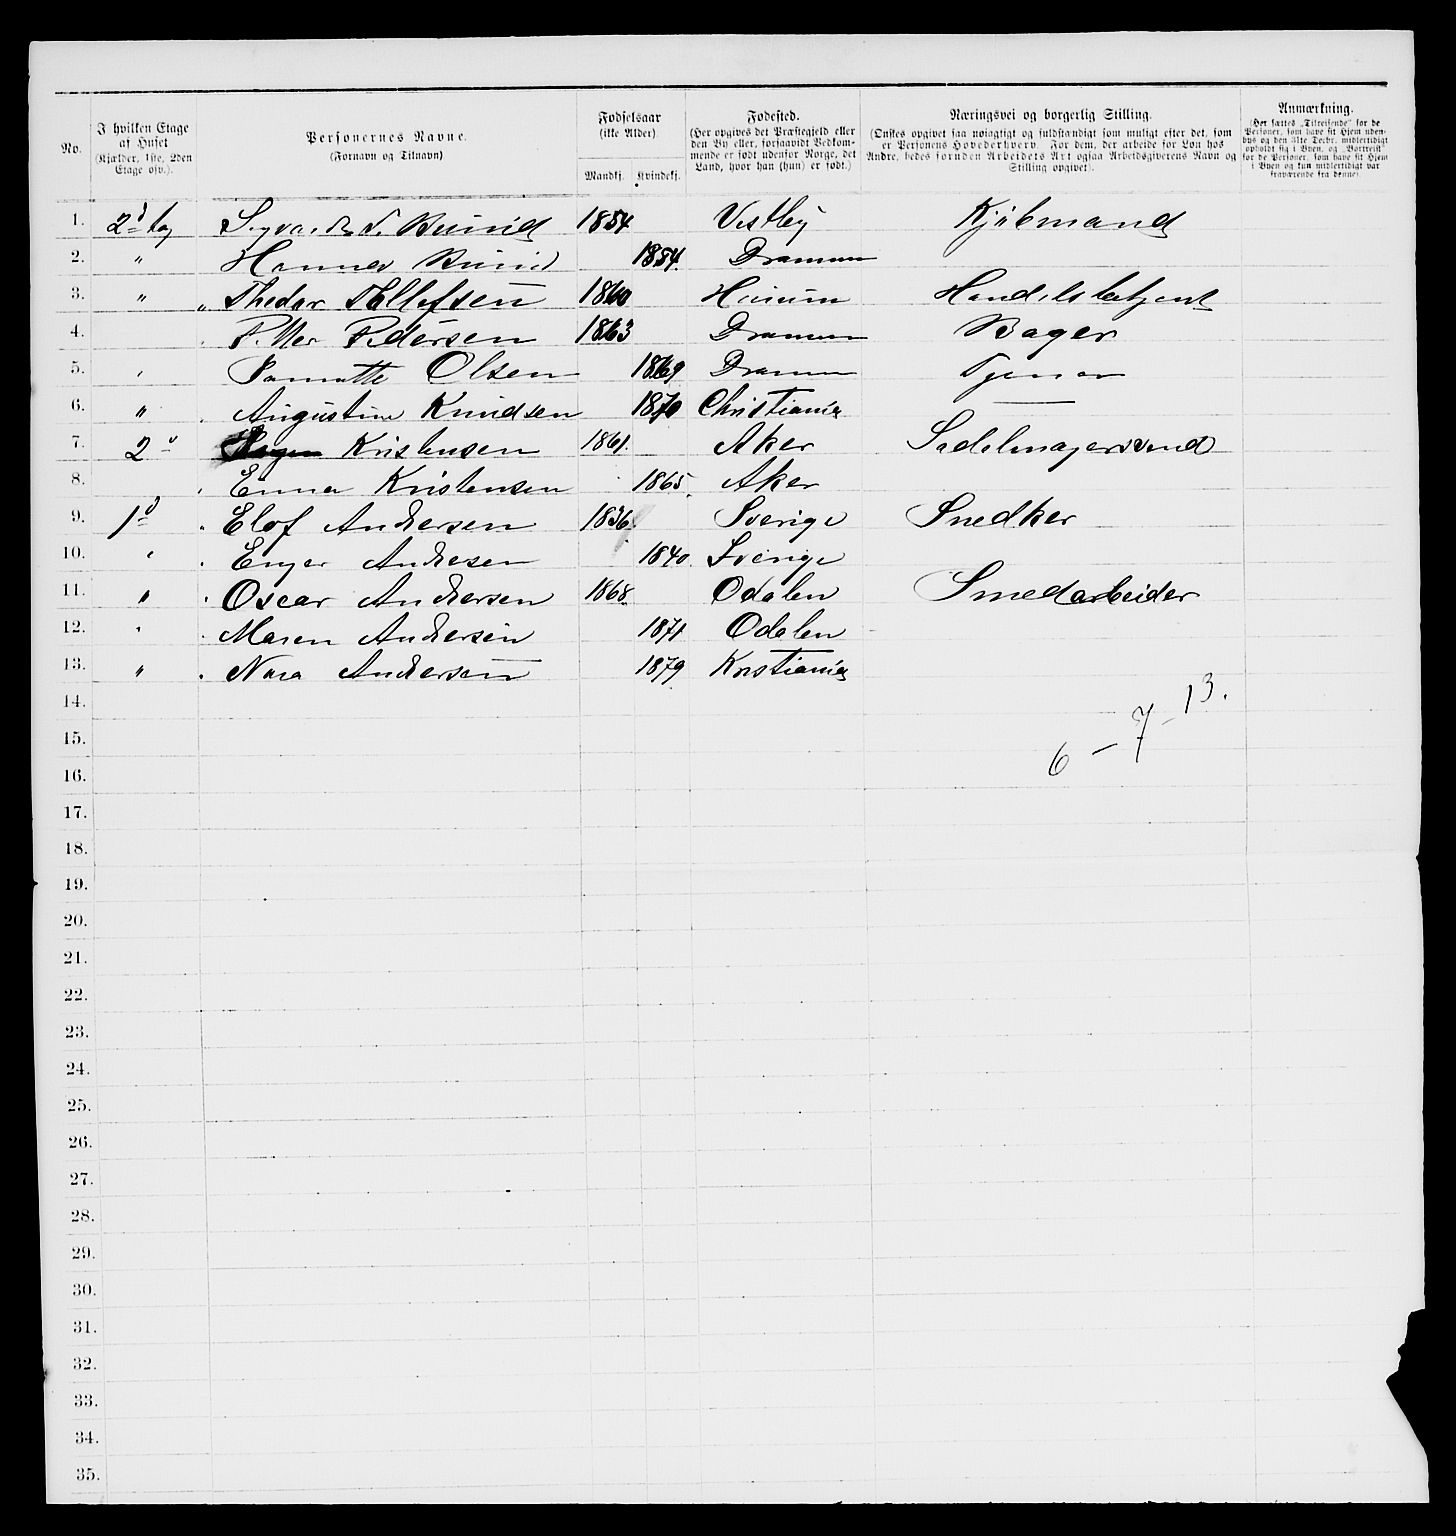 No. | I hvilken Etage af Huset (Kjælder, 1ste, 2den Etage osv.). | Personernes Navne. (Fornavn og Tilnavn) | Fødselsaar (ikke Alder) Mandkj. Kvindekj. | Fødested. (Her opgives det Præstegjeld eller den By eller, forsaavidt Vedkommende er født udenfor Norge, det Land, hvor han (hun) er født.) | Næringsvei og borgerlig Stilling. (Ønskes opgivet saa nøiagtigt og fuldstændigt som muligt efter det, som er Personens Hovederhverv. For dem, der arbeide for Løn hos Andre, bedes foruden Arbeidets Art ogsaa Arbeidsgiverens Navn og Stilling opgivet). | Anmærkning. (Her sættes „Tilreisende" for de Personer, som have sit Hjem udenbys og den 31te Decbr. midlertidigt opholdt sig i Byen, og „Bortreist" for de Personer, som have sit Hjem i Byen og kun midlertidigt var fraværende fra denne).
1. 2d 1854 Vestby Kjøbmand
2. " Hanna 1854. Drammen
3. " „ Thedor Tollefsen 1860 Hurum Handelsbetjent
4. Petter Pedersen 1863 Drammen Bager
5. " Olsen 1869 Drammen
6. " Augustine Knudsen 1870 Christiania —
7. 2d Kristensen 1861. Aker Sadelmagersvend
8. Emma Kristensen 1865. Aker
9. 1d Elof Andersen 1836. Sverige Snedker
10. " Andresen 1840. Sverige
11. " Oscar Andersen 1868. Odalen Smedarbeider
12. " Maren Andersen 1871 Odalen
13. " Nora Andersen 1879 Kristiania
14.
6 – 7 – 13.
15.
16.
17.
18.
19.
20.
21.
22.
23.
24.
25.
26.
27.
28.
29.
30.
31.
32.
33.
34.
35.